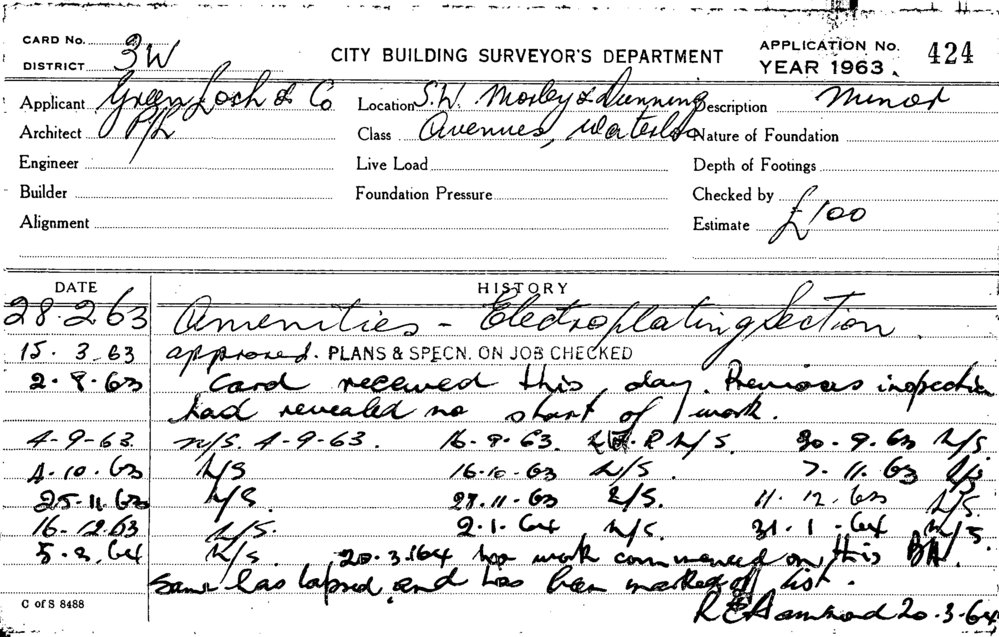 CARD No.
DISTRICT 3W
CITY BUILDING SURVEYOR'S DEPARTMENT
APPLICATION No. 424
YEAR 1963
Applicant Green Losh & Co P/L
Location S.W. Morley & Dunning
Description Minor
Architect
Class Avenues, Waterloo
Nature of Foundation
Engineer
Live Load
Depth of Footings
Builder
Foundation Pressure
Checked by
Alignment
Estimate £100
DATE HISTORY
28.2.63 Amenities - Electroplating Section
15.3.63 approved. PLANS & SPECN. ON JOB CHECKED
2.8.63 Card received this day. Previous inspection
had revealed no start of work.
4-9-63. N/S. 4-9-63. 16.9.63. N/S. 30.9.63 N/S.
4.10.63 N/S 16.10.63 N/S. 7.11.63 N/S
25.11.63 N/S. 27.11.63 N/S. 11.12.63 N/S.
16.12.63 N/S. 2.1.64 N/S. 31.1.64 N/S.
5.3.64 N/S. 20.3.64 no work commenced on this BA.
Same has lapsed and has been marked off list.
20.3.64
C of S 8488